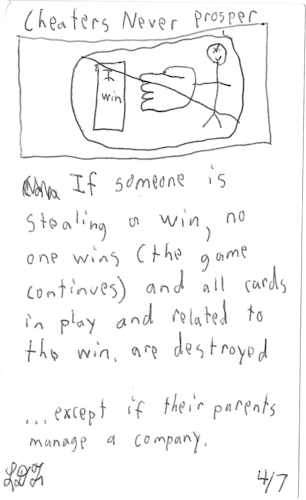 Cheaters Never prosper
I
win
If someone is
stealing a win, no
one wins (the game
continues) and all cards
in play and related to
the win, are destroyed
...except if their parents
manage a company.
4/7